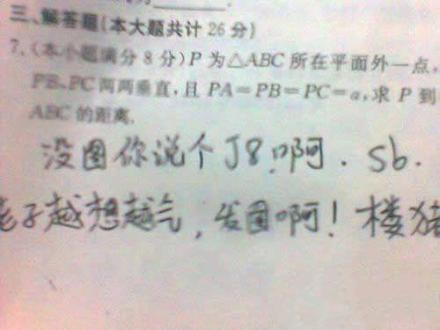 三、解答题(本大题共计 26 分)
7.(本小题满分 8 分)P 为△ABC 所在平面外一点,
PB、PC 两两垂直,且 PA=PB=PC=a,求 P 到
ABC 的距离.
没图你说个J8啊.sb.
老子越想越气,发图啊!楼猪